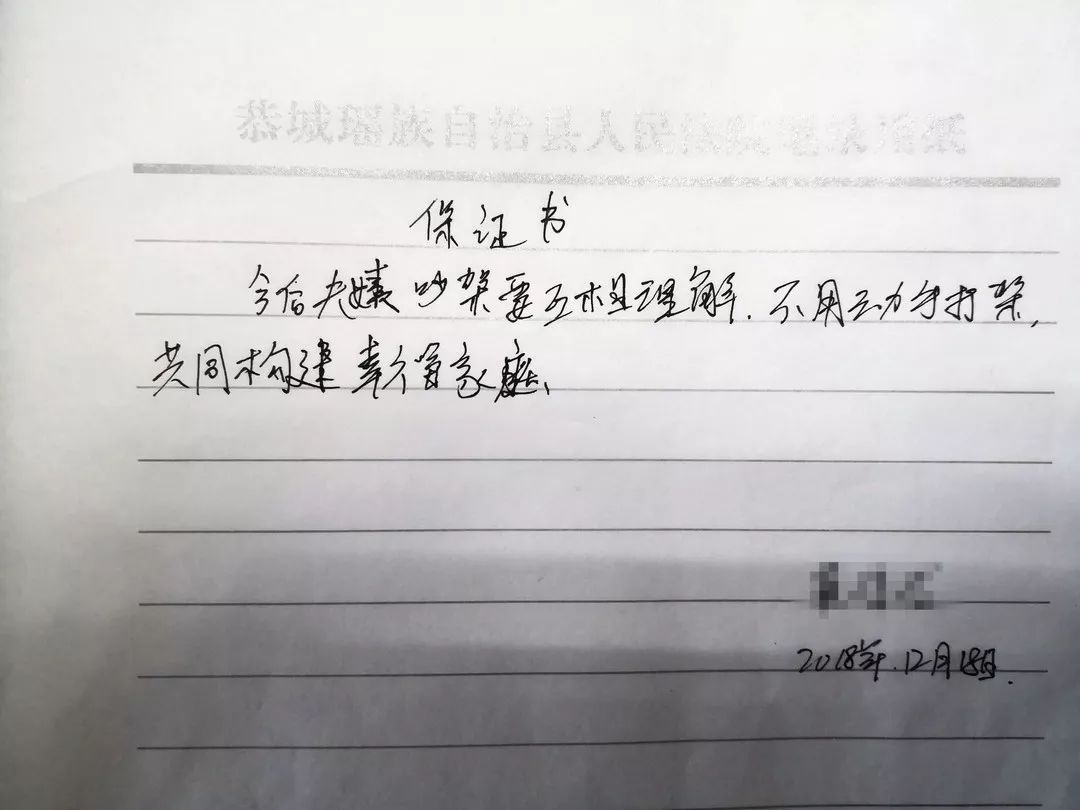 恭城瑶族自治县人民法院笔录用纸
保证书
今后夫妻吵架要互相理解.不用动手打架,
共同构建幸福家庭、
2018年.12月18日.